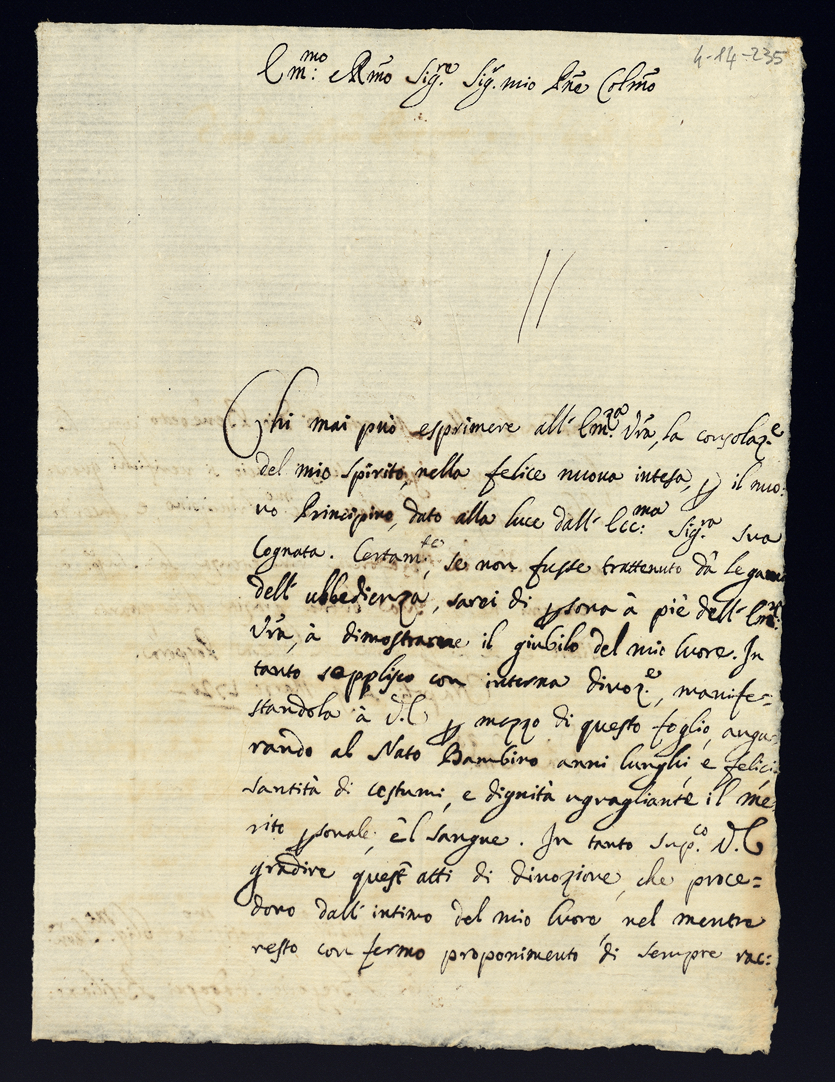 4-14-235
Em:mo e Rmo Sig.re Sig.r mio Pne Colmo
Chi mai può esprimere all' Em:za Vra, la consolaz.e
del mio spirito, nella felice nuova intesa, p il nuo:
vo Principino, dato alla luce dall' Ecc:ma Sig.ra sua
Cognata. Certam.te, se non fusse trattenuto dà legami
dell' ubbedienza, sarei di psona à piè dell' Em:za
Vra, à dimostrarne il giubilo del mio Cuore. In
tanto sepplisco con interna divoz.e, manife=
standola à V.E p mezzo di questo foglio, augu=
rando al Nato Bambino anni lunghi, e felici,
santità di costumi, e dignità uguagliante il me
rito psonale, e'l sangue. In tanto sup.co V.E
gradire quest' atti di divozione, che proce=
dono dall' intimo del mio Cuore, nel mentre
resto con fermo proponimento di sempre rac: